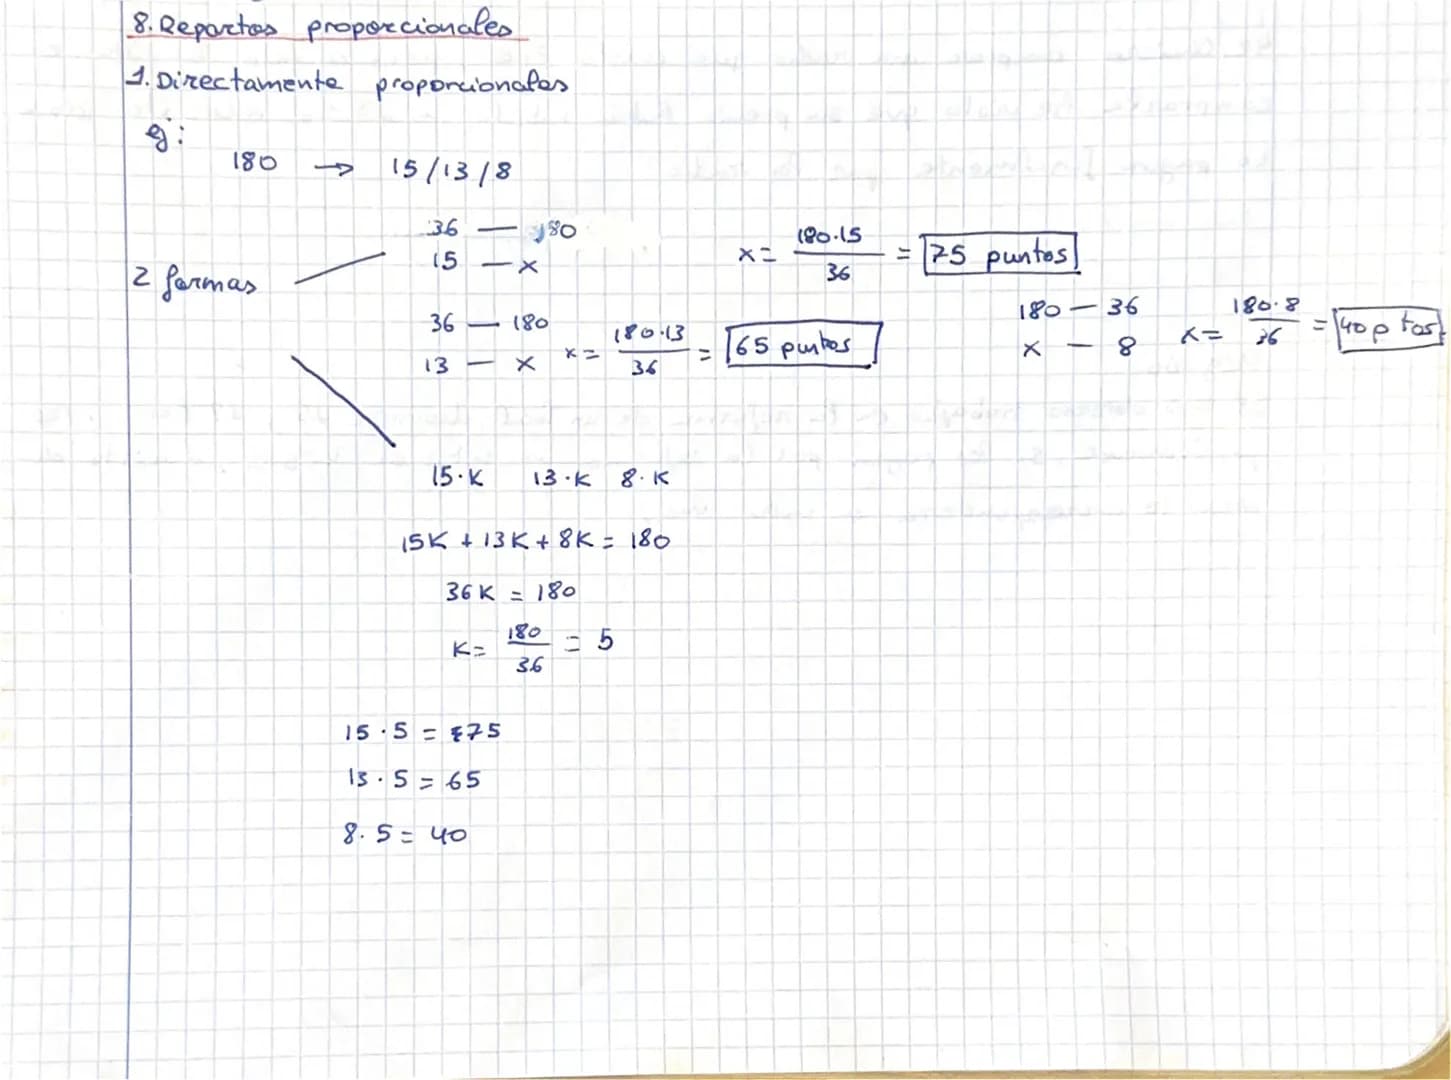 8. Repartos proporcionales
1. Directamente proporcionales
ej:
180 → 15/13/8
2 formas
36 — 180
15 — x
x = 180·15 / 36 = 75 puntos
36 — 180
13 — x
x = 180·13 / 36 = 65 puntos
180 — 36
x — 8
x = 180·8 / 36 = 40 p tos
15·K 13·K 8·K
15K + 13K + 8K = 180
36K = 180
K = 180 / 36 = 5
15·5 = 75
13·5 = 65
8·5 = 40